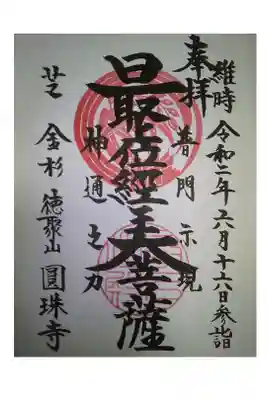 維時 令和二年六月十六日参詣
奉拝
普門示現
最上位經王大菩薩
神通之力
芝 金杉 徳聚山 圓珠寺